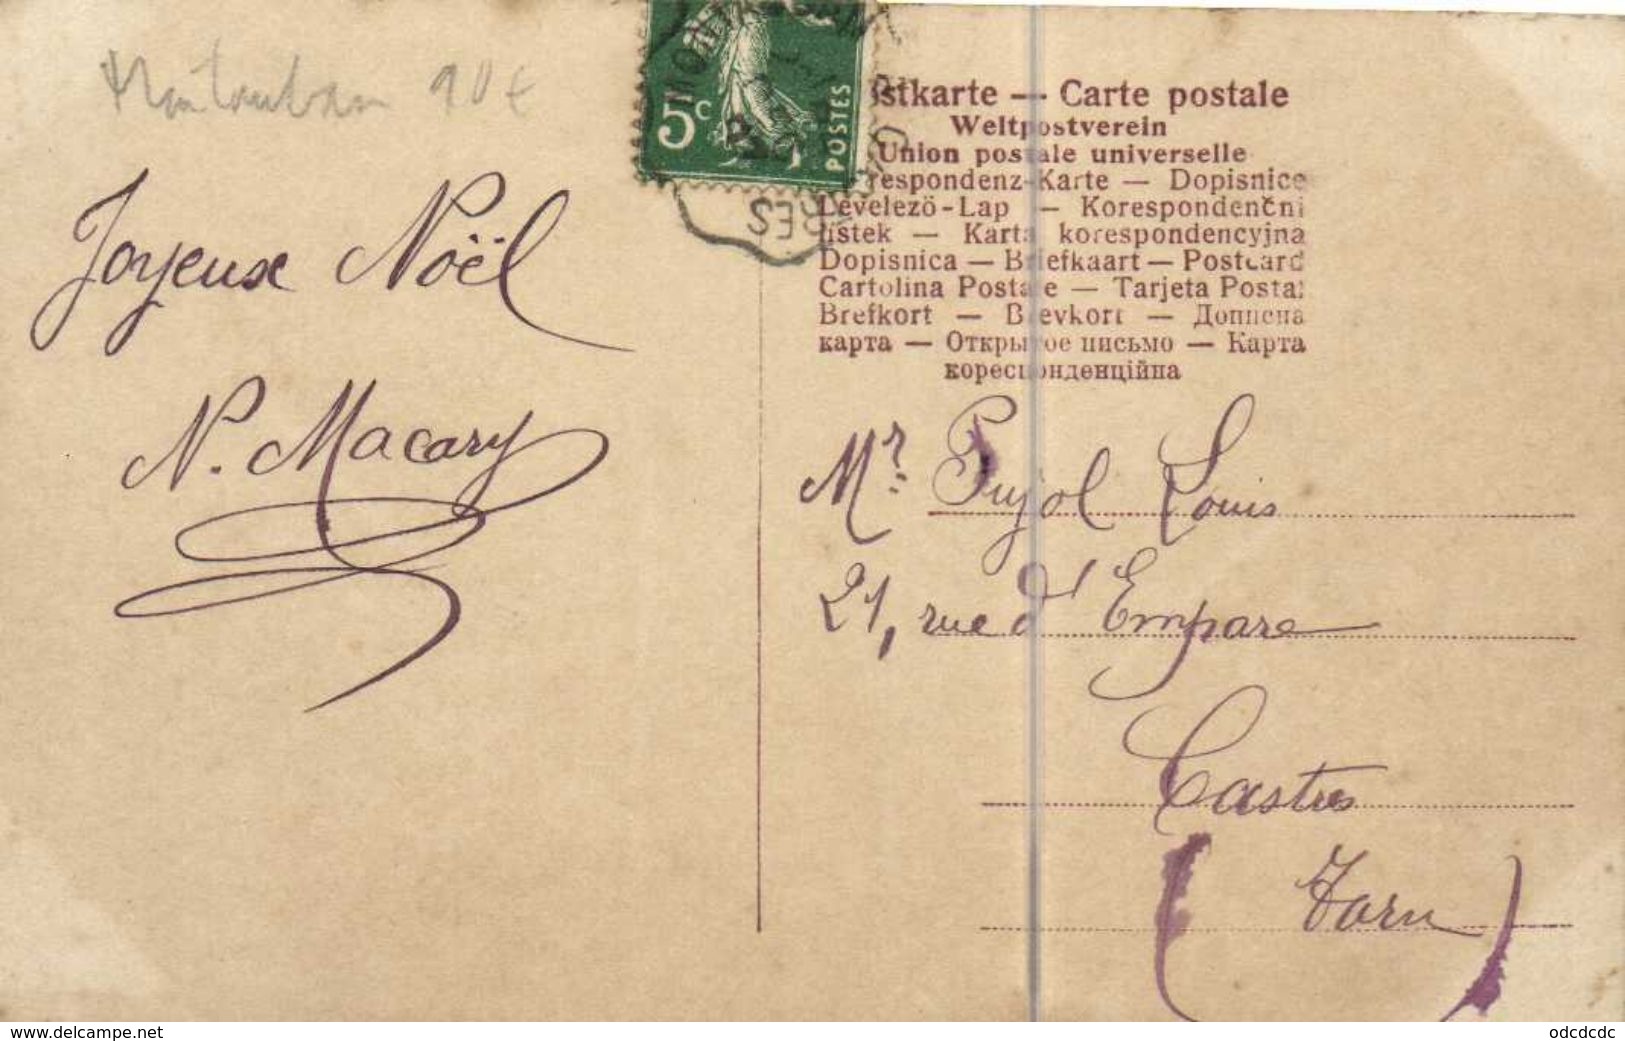 Montauban 90 €
Joyeuse Noël
N. Macary
5c
POSTES
CASTRES
stkarte — Carte postale
Weltpostverein
Union postale universelle
respondenz-Karte — Dopisnice
Levelezö-Lap — Korespondenční
lístek — Karta korespondencyjna
Dopisnica — Briefkaart — Postcard
Cartolina Postale — Tarjeta Postal
Brefkort — Brevkort — Дописна
карта — Открытое письмо — Карта
кореспонденційна
Mr. Pujol Louis
21, rue d'Empare
Castres
(Tarn)
www.delcampe.net
odcdcdc